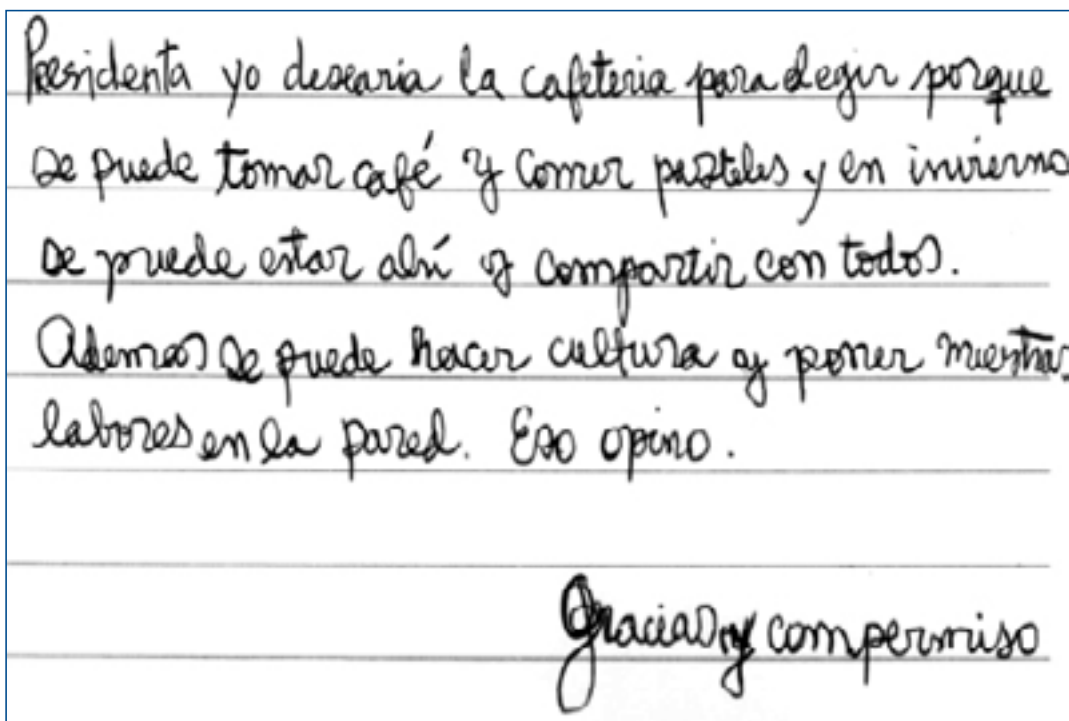 Presidenta yo desearia la cafeteria para elegir porque
se puede tomar café y comer pasteles y en invierno
se puede estar ahí y compartir con todos.
Ademas se puede hacer cultura y poner muestras
labores en la pared. Eso opino.
Gracias y compermiso